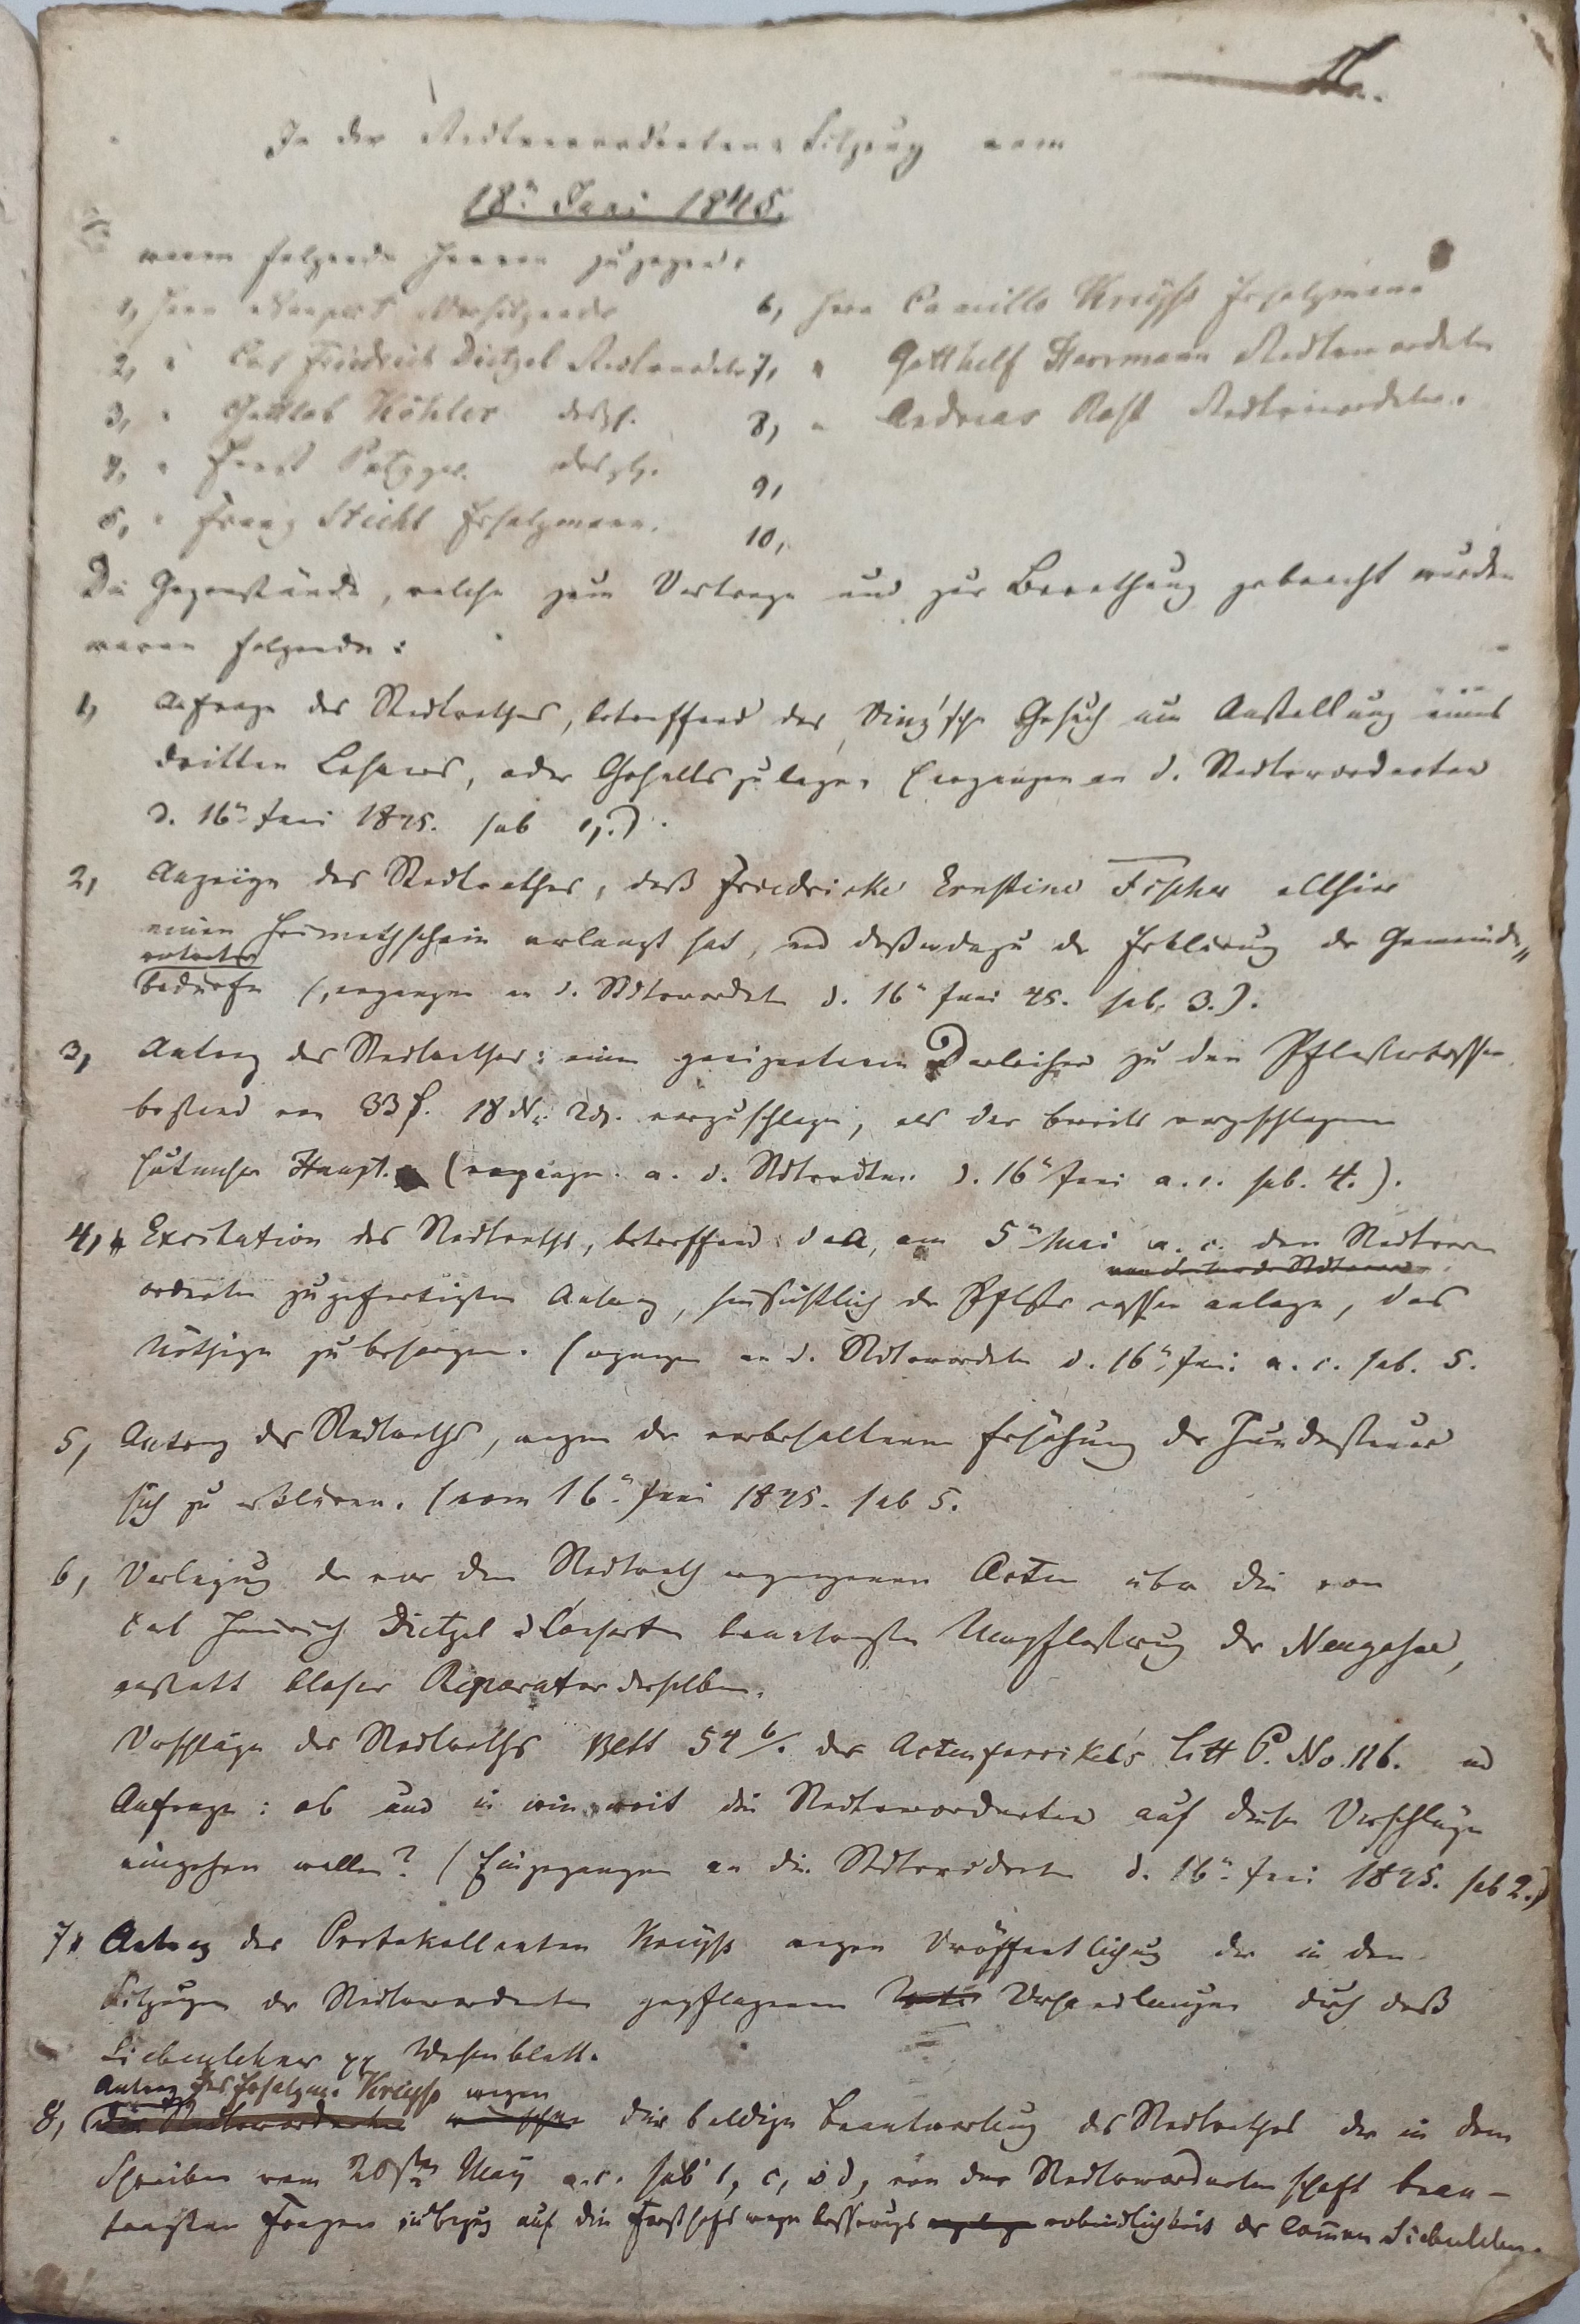 In der Stadtverordneten Sitzung vom
18n Juni 1845.
waren folgende Herren zugegen:
1, Herr Vorsitzender
2, " Carl Friedrich Dietzel Stadtverordneter
3, " Gottlob Köhler desgl.
4, " Ernst desgl.
5, " Franz Stiehl Ersatzmann.
6, Herr Camillo Kreyß Ersatzmann
7, " Gotthelf Herrmann Stadtverordneter
8, " Andreas Rost Stadtverordneter.
9,
10,
Die Gegenstände, welche zum Vortrage und zur Berathung gebracht wurden
waren folgende:
1, Anfrage des Stadtrathes, betreffend das Gesuch um Anstellung eines
dritten Lehrers, oder Gehaltszulage, (ergangen an d. Stadtverordneten
d. 16n Juni 1845. sub 1,.).
2, Anzeige des Stadtrathes, daß Friedricke Ernstine Fischer allhier
einen Heimathschein erlangt hat, und daß dazu der Erklärung der Gemeinde"
vertreter
bedürfe (, ergangen an d. Stdtverordnete d. 16n Juni 45. sub. 3.).
3, Antrag des Stadtrathes: einen geeigneteren Darleiher zu den Pflasterkassen
bestand von 33 18 2 vorzuschlagen, als der bereits vorgeschlagene
Haupt. (ergangen a. d. Stdtvordten. d. 16n Juni a. c. sub. 4.).
4, Excitation des Stadtraths, betreffend: den, am 5n Mai a. c. den Stadtver
ordneten zugefertigten Antrag, hinsichtlich der anlage, das
Nöthige zu besorgen. (ergangen an d. Stdtverordneten d. 16n Juni a. c. sub. 5.
5, Antrag des Stadtraths, wegen der vorbehaltenen Erhöhung der Hundesteuer
sich zu erklären. (vom 16n Juni 1845. sub 5.
6, Vorlegung der vor dem Stadtrath ergangenen Acten über die von
Carl Heinrich Dietzel & Consorten beantragte Umpflasterung der Neugasse,
anstatt bloser Reparatur derselben.
Vorschläge des Stadtraths Blatt 54 b/. des Actenfascikels Litt P. No. 116. und
Anfrage: ob und in wie weit die Stadtverordneten auf diese Vorschläge
eingehen wollen? (Eingegangen an die Stdtverordneten d. 16n Juni 1845. sub 2.)
7, Antrag des Protokollanten Kreyß wegen Veröffentlichung der in den
Sitzungen der Stadtverordneten gepflogenen Verhandlungen durch daß
Siebenlehner pp Wochenblatt.
Antrag des Ersatzm. Kreyß wegen
8, die Stadtverordneten wünschen die baldige Beantwortung des Stadtrathes der in dem
Schreiben vom 20sten May a. c. sub 1, c, & d, von der Stadtverordnetenschaft bean-
tragten Fragen in Bezug auf die verbindlichkeit der Commun Siebenlehn.